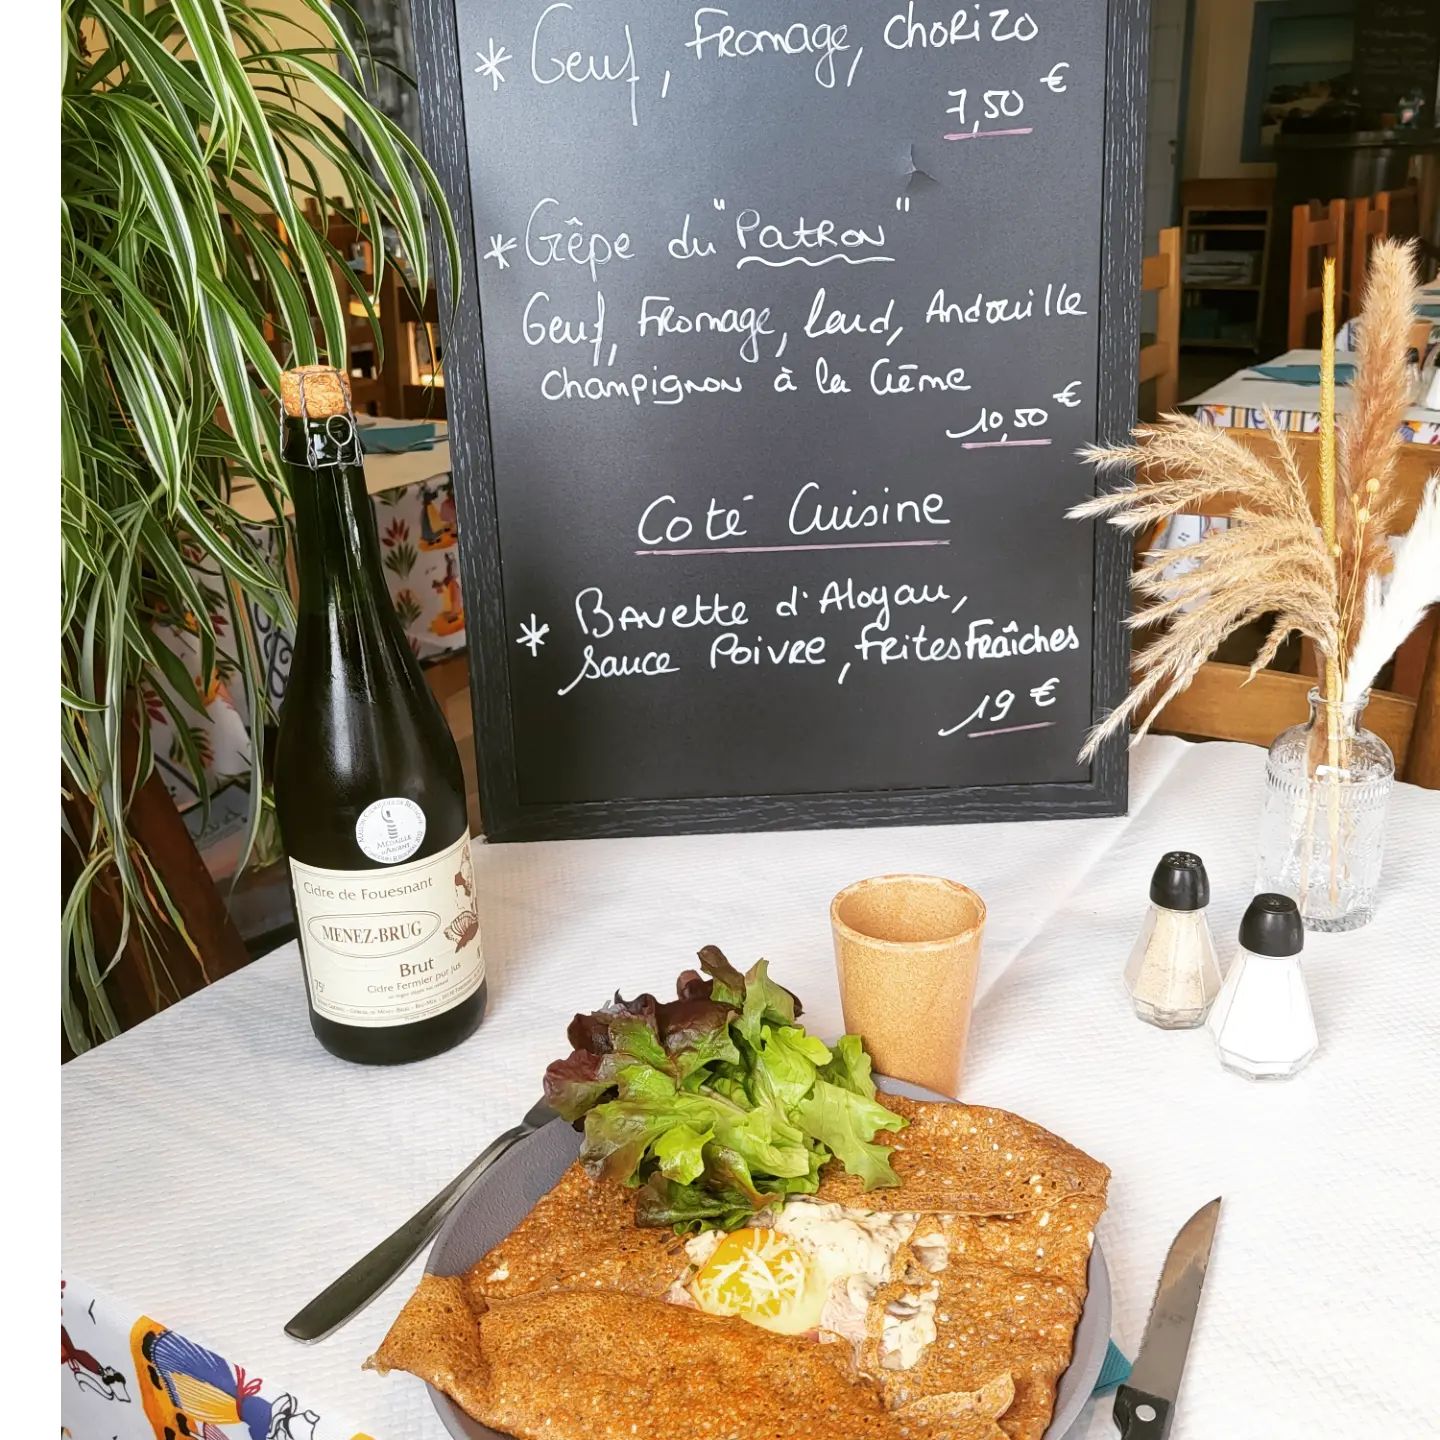 * Oeuf, Fromage, Chorizo
7,50 €
* Crêpe du "Patron"
Oeuf, Fromage, Lard, Andouille
Champignon à la Crème
10,50 €
Coté Cuisine
* Bavette d'Aloyau,
Sauce Poivre, Frites Fraîches
19 €
MÉDAILLE
D'ARGENT
Cidre de Fouesnant
MENEZ-BRUG
Brut
Cidre Fermier pur jus
75